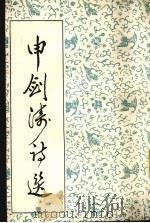 申剑涛诗选